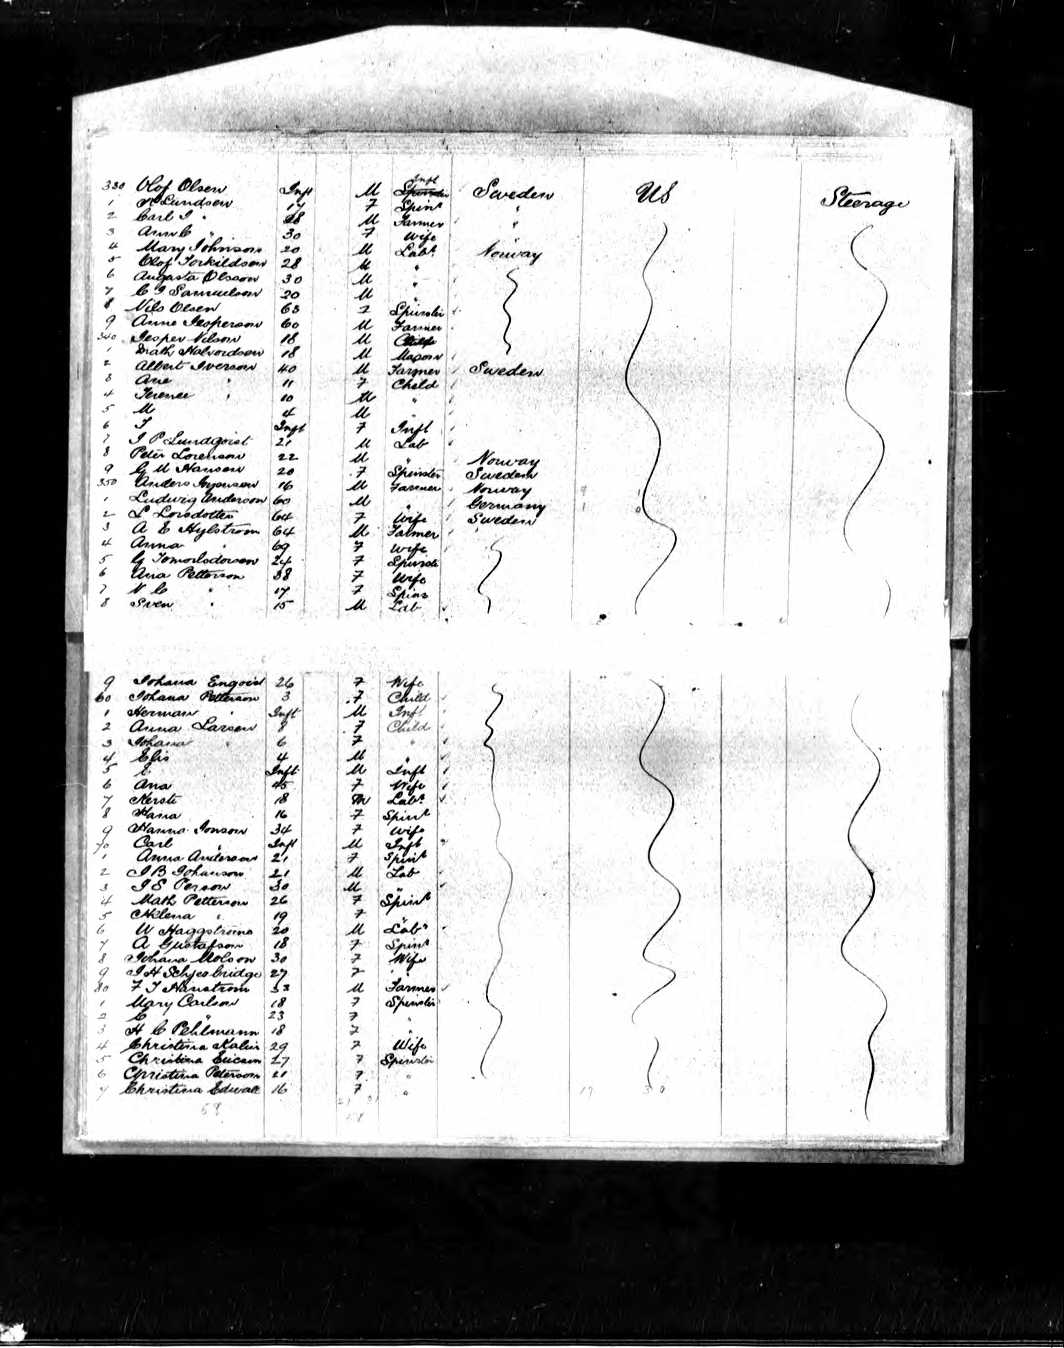 330 Olof Olsen Inft M Inft Sweden US Steerage
1 Lundsen 17 F Spinr "
2 Carl I " 28 M Farmer "
3 Ann C " 30 F Wife "
4 Mary Johnson 20 M Labr Norway
5 Olof Torkildson 28 M "
6 Augasta Olsson 30 M "
7 C I Samuelson 20 M "
8 Nils Olsen 63 F Spinster
9 Anne Jesperson 60 M Farmer
340 Jesper Nilson 18 M
1 Halvordson 18 M Mason
2 Albert Iverson 40 M Farmer Sweden
3 Ane " 11 F Child
4 Terence " 10 M "
5 M 4 M "
6 I Inft F Inft
7 I P Lundqoist 21 M Lab
8 Peter Lorenson 22 M " Norway
9 G M Hanson 20 F Spinster Sweden
350 Anders 16 M Farmer Norway
1 Ludwig Anderson 60 M " Germany
2 L Lorsdotter 64 F Wife Sweden
3 A E Hylstrom 64 M Falmer
4 Anna " 69 F Wife
5 G 24 F Spinste
6 Ana Petterson 38 F Wife
7 N C " 17 F Spins
8 Sven " 15 M Lab
9 Johana Engoist 26 F Wife
60 Johana Petterson 3 F Child
1 Herman " Inft M Inft
2 Anna Larsen 8 F Child
3 Johana " 6 F "
4 Elis 4 M "
5 Inft M Inft
6 Ana 45 F Wife
7 Kersti 18 M Labr
8 Hana 16 F Spinr
9 Hanna Jonson 34 F Wife
70 Carl " Inft M Inft
1 Anna Anderson 21 F Spinr
2 I B Johanson 21 M Lab
3 I E Person 30 M "
4 Math Petterson 26 F Spinr
5 Chilena " 19 F "
6 W Haggstrom 20 M Labr
7 A Gustafson 18 F Spinr
8 Johana Molson 30 F Wife
9 I H 27 F "
80 F I Hanstrom 33 M Farmer
1 Mary Carlson 18 F Spinster
2 C " 23 F "
3 H C Pehlmann 18 F "
4 Christina Kalin 29 F Wife
5 Christina Ericson 27 F Spinster
6 Christina Peterson 21 F "
7 Christina Edwall 16 F " 17 30
59